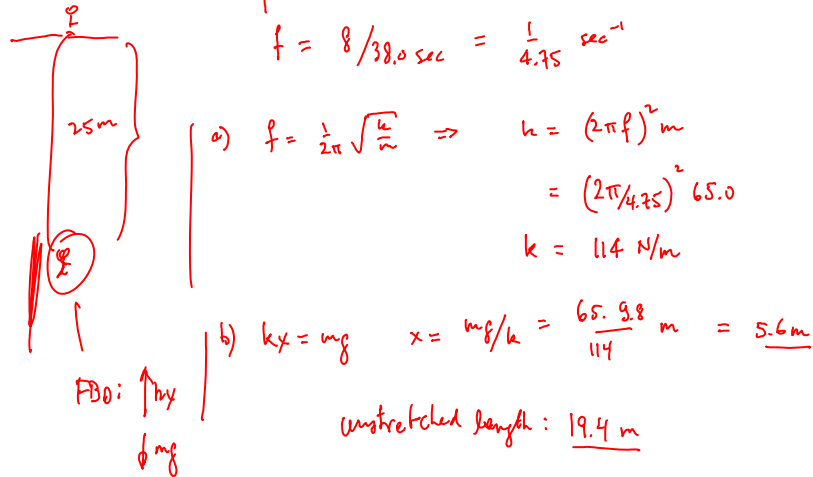 f = 8/38.0 sec = 1/4.75 sec⁻¹
25m
a) f = 1/2π √(k/m) ⇒ k = (2πf)² m
= (2π/4.75)² 65.0
k = 114 N/m
b) kx = mg x = mg/k = 65. 9.8/114 m = 5.6 m
FBD: ↑kx
↓mg
unstretched length : 19.4 m